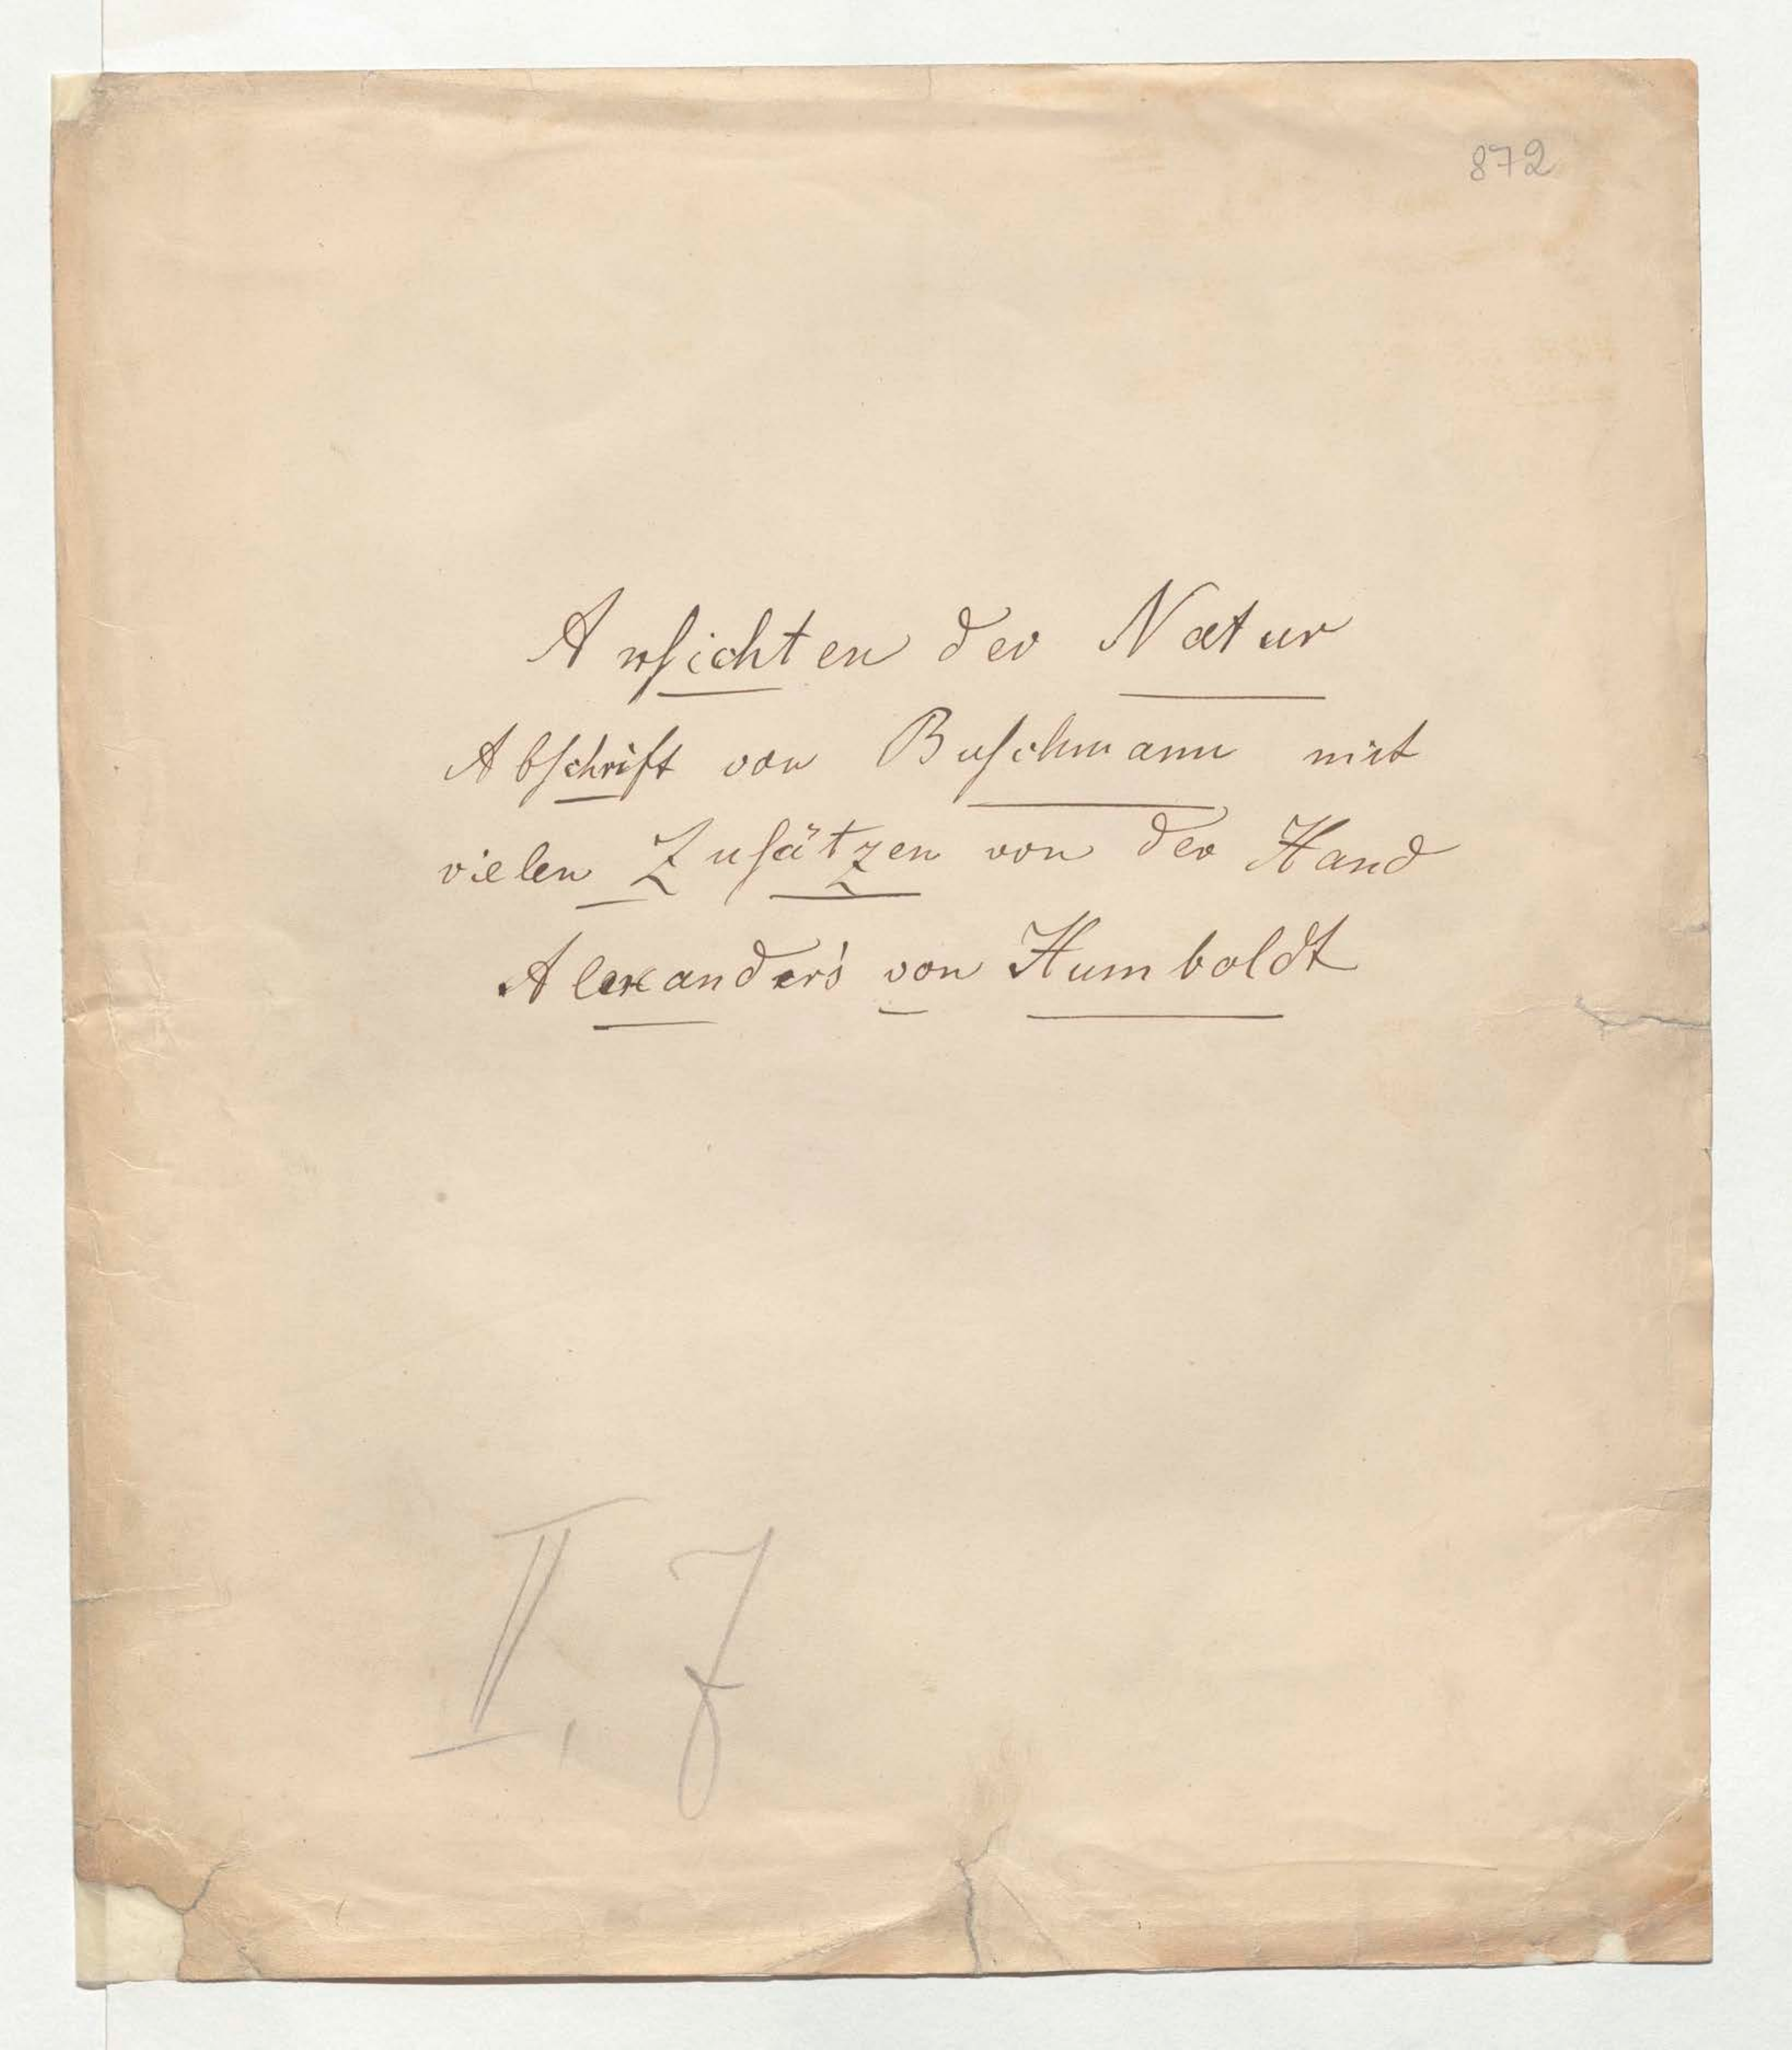 872
Anſichten der Natur
Abſchrift von Buſchmann mit
vielen Zuſätzen von der Hand
Alexander's von Humboldt
II, 7